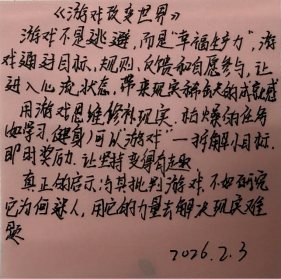 《游戏改变世界》
游戏不是逃避,而是"幸福生产力",游
戏通过目标、规则、反馈和自愿参与,让
进入心流状态,带来现实稀缺的成就感
用游戏思维修补现实,枯燥的任务
(如学习、健身)可以"游戏"一拆解小目标,
即时奖励,让坚持变得有趣
真正的启示:与其批判游戏,不如研究
它为何迷人,用它的力量去解决现实难
题
2026.2.3